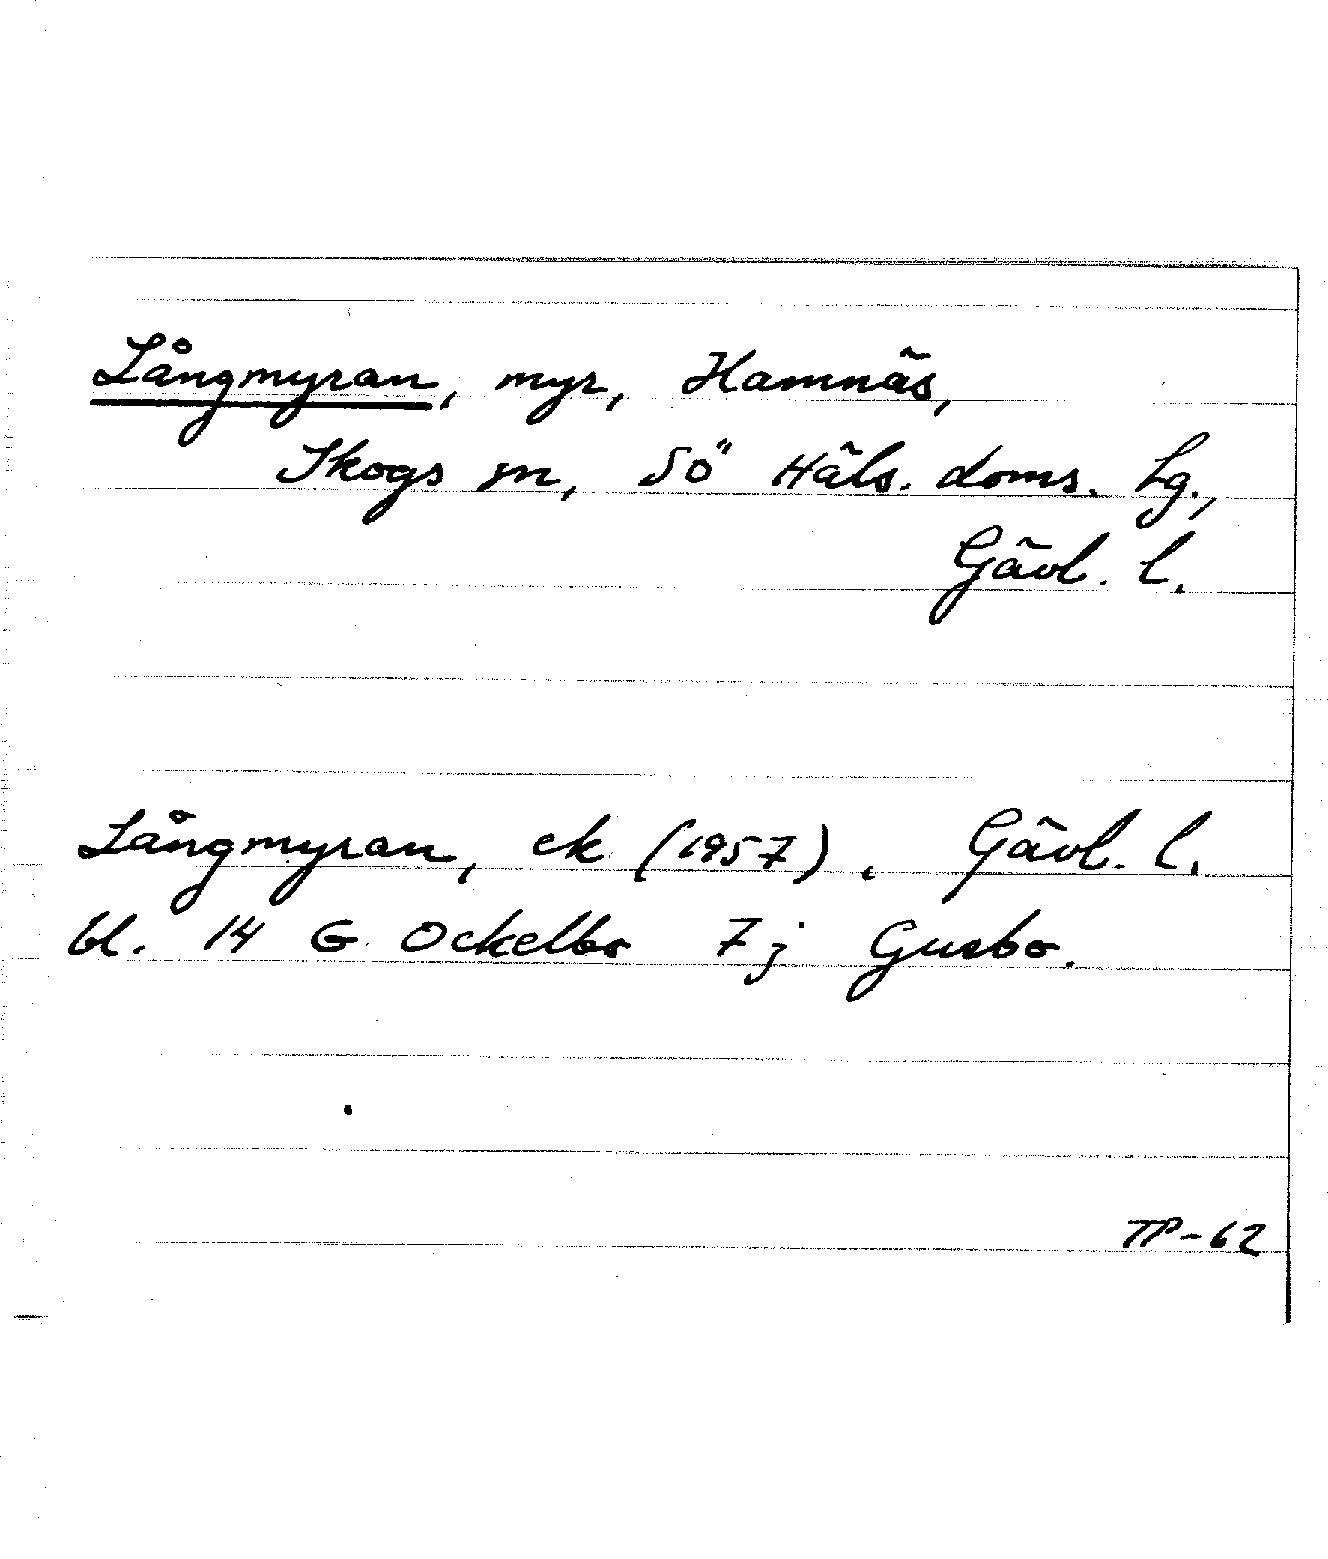 Långmyran, myr, Hamnäs,
Skogs sn, Sö Häls. doms. lg.,
Gävl. l.
Långmyran, ek (1957), Gävl. l.
bl. 14 G Ockelbo 7j Gusbo.
TP-62